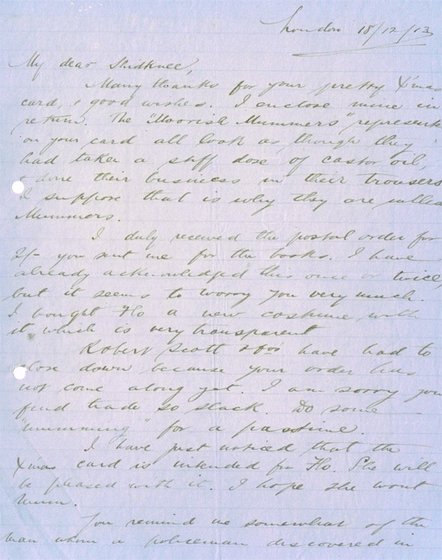 London 18/12/13
My dear Skidknee,
Many thanks for your pretty X'mas
card, & good wishes. I enclose mine in
return. The "Moorish Mummers" represented
on your card all look as though they
had taken a stiff dose of castor oil
& done their business in their trousers
I suppose that is why they are called
Mummers.
I duly received the postal order for
2/- you sent me for the books. I have
already acknowledged this once or twice,
but it seems to worry you very much.
I bought Flo a new costume with
it which is very transparent
Robert Scott & Co's have had to
close down because your order has
not come along yet. I am sorry you
find trade so slack. Do some
"mumming" for a pastime.
I have just noticed that the
X'mas card is intended for Flo. She will
be pleased with it. I hope she wont
mum.
You remind me somewhat of the
man whom a policeman discovered in